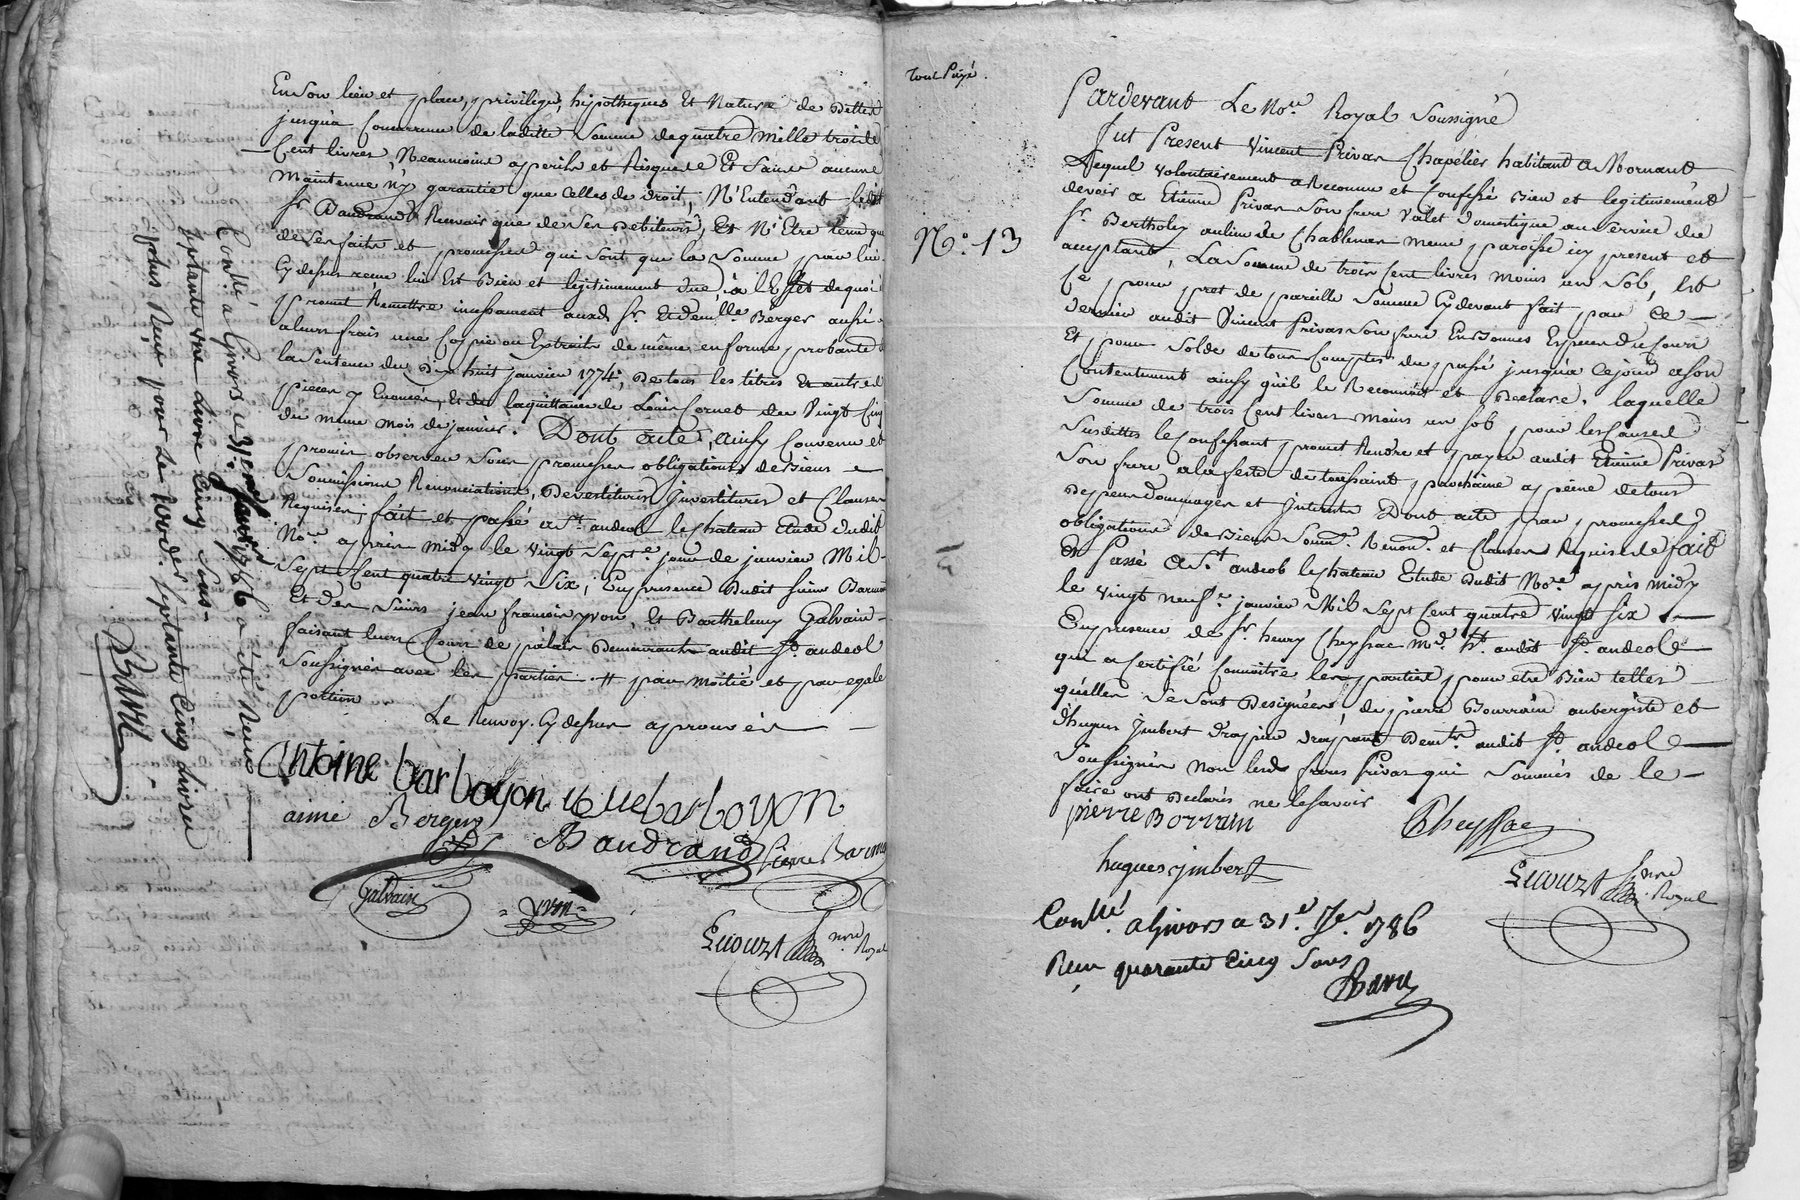 En son lieu et place, privileges, hipotheques Et Nature de Dettes
jusqu'a Concurrence de laditte Somme de quatre Mille trois
Cent livres, Neanmoins a perils et Risques Et Sans aucune
Maintenue n'y garantie que Celles de droit, N'Entendant ledit
Sr. Baudrand Recevoir que de ses Debiteurs, Et N'Etre tenu que
de ses faits et promesses qui sont que la Somme par lui
Cy dessus remise lui Est Bien et legitimement Due, à l'Effet de quoi
promet Remettre incessament auxd. Sr. Et Demlle. Berger aussi
a leurs frais une Copie ou Extraits de même en forme probante
la Sentence du Dix huit janvier 1774, De tous les titres Et autres
pieces y Enoncées, Et de la quittance de Louis Cornet du Vingt Cinq
du même mois de janvier. Dont acte, ainsy Convenu et
promis observer Sous promesses obligations de Biens
Soumissions Renonciations, Devestitures Investitures et Clauses
Requises, fait et passé a St. andeol le chateau Etude dudit
Nore. apres Midy le vingt Septe. jour de janvier Mil
Sept Cent quatre vingt Six, En presence Dudit Sieur Barmon
Et des Sieurs jean francois yvon, et Barthelemy Galvain
faisant leurs Cours de palais Demeurants audit St. andeol
Soussignés avec les parties. # par moitié et par egale
portion
Le Renvoy Cy dessus aprouvés
Antoine barboyon
aimé Berger
A Baudrand
Pierre Barm
Galvain
yvon
Lecourt nre Royal
Conllé. a Givors le 31e janvier 1786 a été Reçu
Septante une Livre Cinq Sous
plus Reçu pour le Droit des Septante Cinq Livres
Bavu
tout Payé.
N°. 13
Pardevant Le Nore. Royal Soussigné
fut Present Vincent Privas Chapelier habitant a Mornant
Lequel volontairement a Reconnu et Confessé Bien et legitimement
devoir a Etienne Privas Son frere Valet Domestique au Service du
Sr. Bertholey au lieu de Chablenas meme paroisse icy present et
acceptant, La Somme de trois Cent livres Moins un Sol, Et
Ce pour pret de pareille Somme Cy devant fait par Ce
dernier audit Vincent Privas Son frere En bonnes Especes du Cours
Et pour Solde de tous Comptes du passé jusqu'a Ce jour a son
Contentement ainsy qu'il le Reconnoit et Declare. laquelle
Somme de trois Cent livres Moins un Sol pour les Causes
Susdittes le Confessant promet Rendre et payer audit Etienne Privas
Son frere a la feste de toussaint prochaine a peine de tous
Depens Dommages et Interets Dont acte par promesses
obligations de Biens Soumn. Renonn. et Clauses Requises fait
Et Passé a St. andeol le chateau Etude dudit Nore. après Midy
le vingt neufe. janvier Mil Sept Cent quatre vingt Six
En presence de Sr. henry Cheyssac Md. audit St. andeol
qui a Certifié Connoitre les parties pour etre Bien telles
qu'elles se sont Designées, de pierre Bourrain aubergiste et
d'hugues Imbert Drapier Drapant Demts. audit St. andeol
Soussignés Non lesd. freres Privas qui Sommés de le
faire ont Declarés ne le savoir
pierre Borrain
Cheyssac
hugues jmbert
Lecourt nre Royal
Conllé. a Givors a 31e. Jer. 1786
Reçu quarante Cinq Sous
Bavu